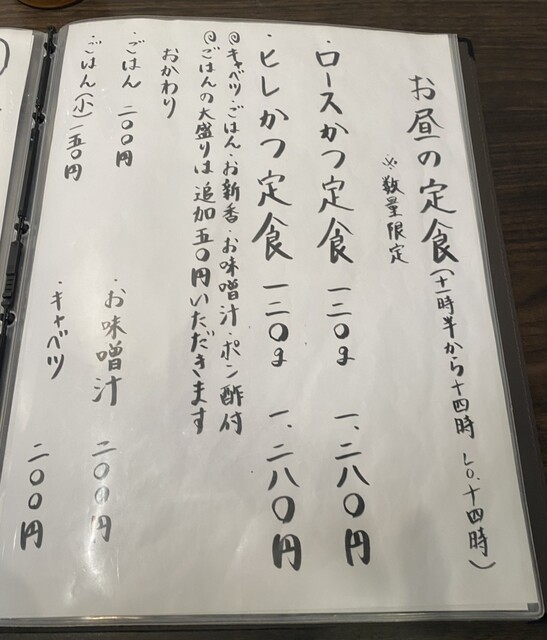 お昼の定食(十一時半から十四時 L.O.十四時)
※数量限定
・ロースかつ定食 一二〇g 一、二八〇円
・ヒレかつ定食 一二〇g 一、二八〇円
◎キャベツ・ごはん・お新香・お味噌汁・ポン酢付
◎ごはんの大盛りは追加五〇円いただきます
おかわり
・ごはん 二〇〇円
・ごはん(小)一五〇円
・お味噌汁 二〇〇円
・キャベツ 二〇〇円